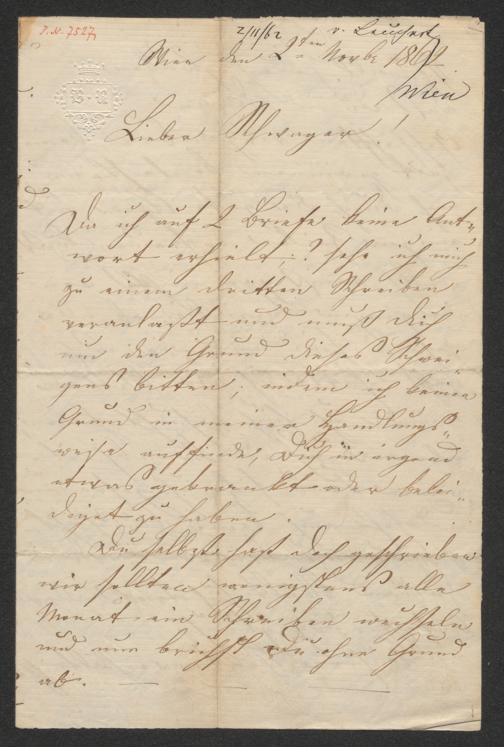 I.N. 7527
2/11/62 v. Leuchert
Wien den 2ten Novbr 1862
Wien
Lieber Schwager!
Da ich auf 2 Briefe keine Ant-
wort erhielt :? sehe ich mich
zu einem dritten Schreiben
veranlaßt und muß Dich
um den Grund dieses Schwei-
gens bitten; indem ich keinen
Grund in meiner Handlungs-
weise auffinde, Dich in irgend
etwas gekränkt oder belei-
diget zu haben.
Du selbst hast doch geschrieben
wir sollten wenigstens alle
Monat ein Schreiben wechseln
und nun brichst Du ohne Grund
ab.